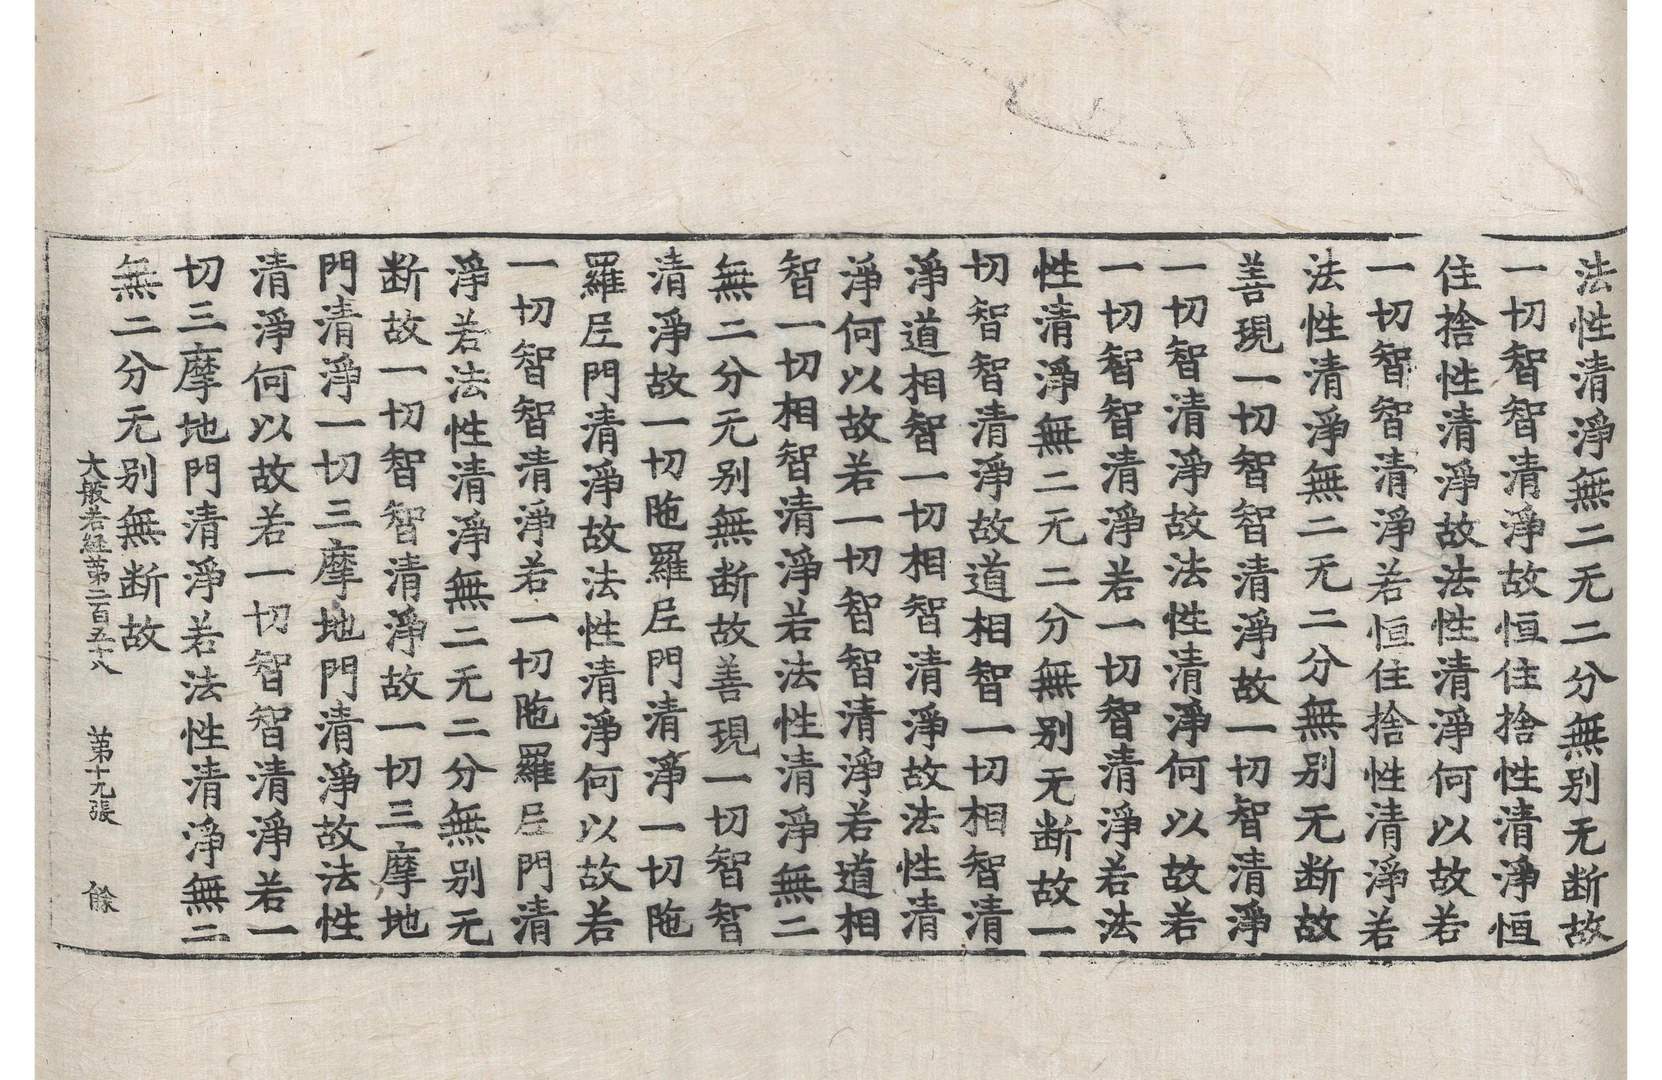 法性清淨無二无二分無别无断故
一切智智清淨故恒住捨性清淨恒
住捨性清淨故法性清淨何以故若
一切智智清淨若恒住捨性清淨若
法性清淨無二无二分無别无断故
善現一切智智清淨故一切智清淨
一切智清淨故法性清淨何以故若
一切智智清淨若一切智清淨若法
性清淨無二无二分無别无断故一
切智智清淨故道相智一切相智清
淨道相智一切相智清淨故法性清
淨何以故若一切智智清淨若道相
智一切相智清淨若法性清淨無二
無二分无别無断故善現一切智智
清淨故一切陁羅尼門清淨一切陁
羅尼門清淨故法性清淨何以故若
一切智智清淨若一切陁羅尼門清
淨若法性清淨無二无二分無别无
断故一切智智清淨故一切三摩地
門清淨一切三摩地門清淨故法性
清淨何以故若一切智智清淨若一
切三摩地門清淨若法性清淨無二
無二分无别無断故
大般若経第二百五十八 第十九張 餘